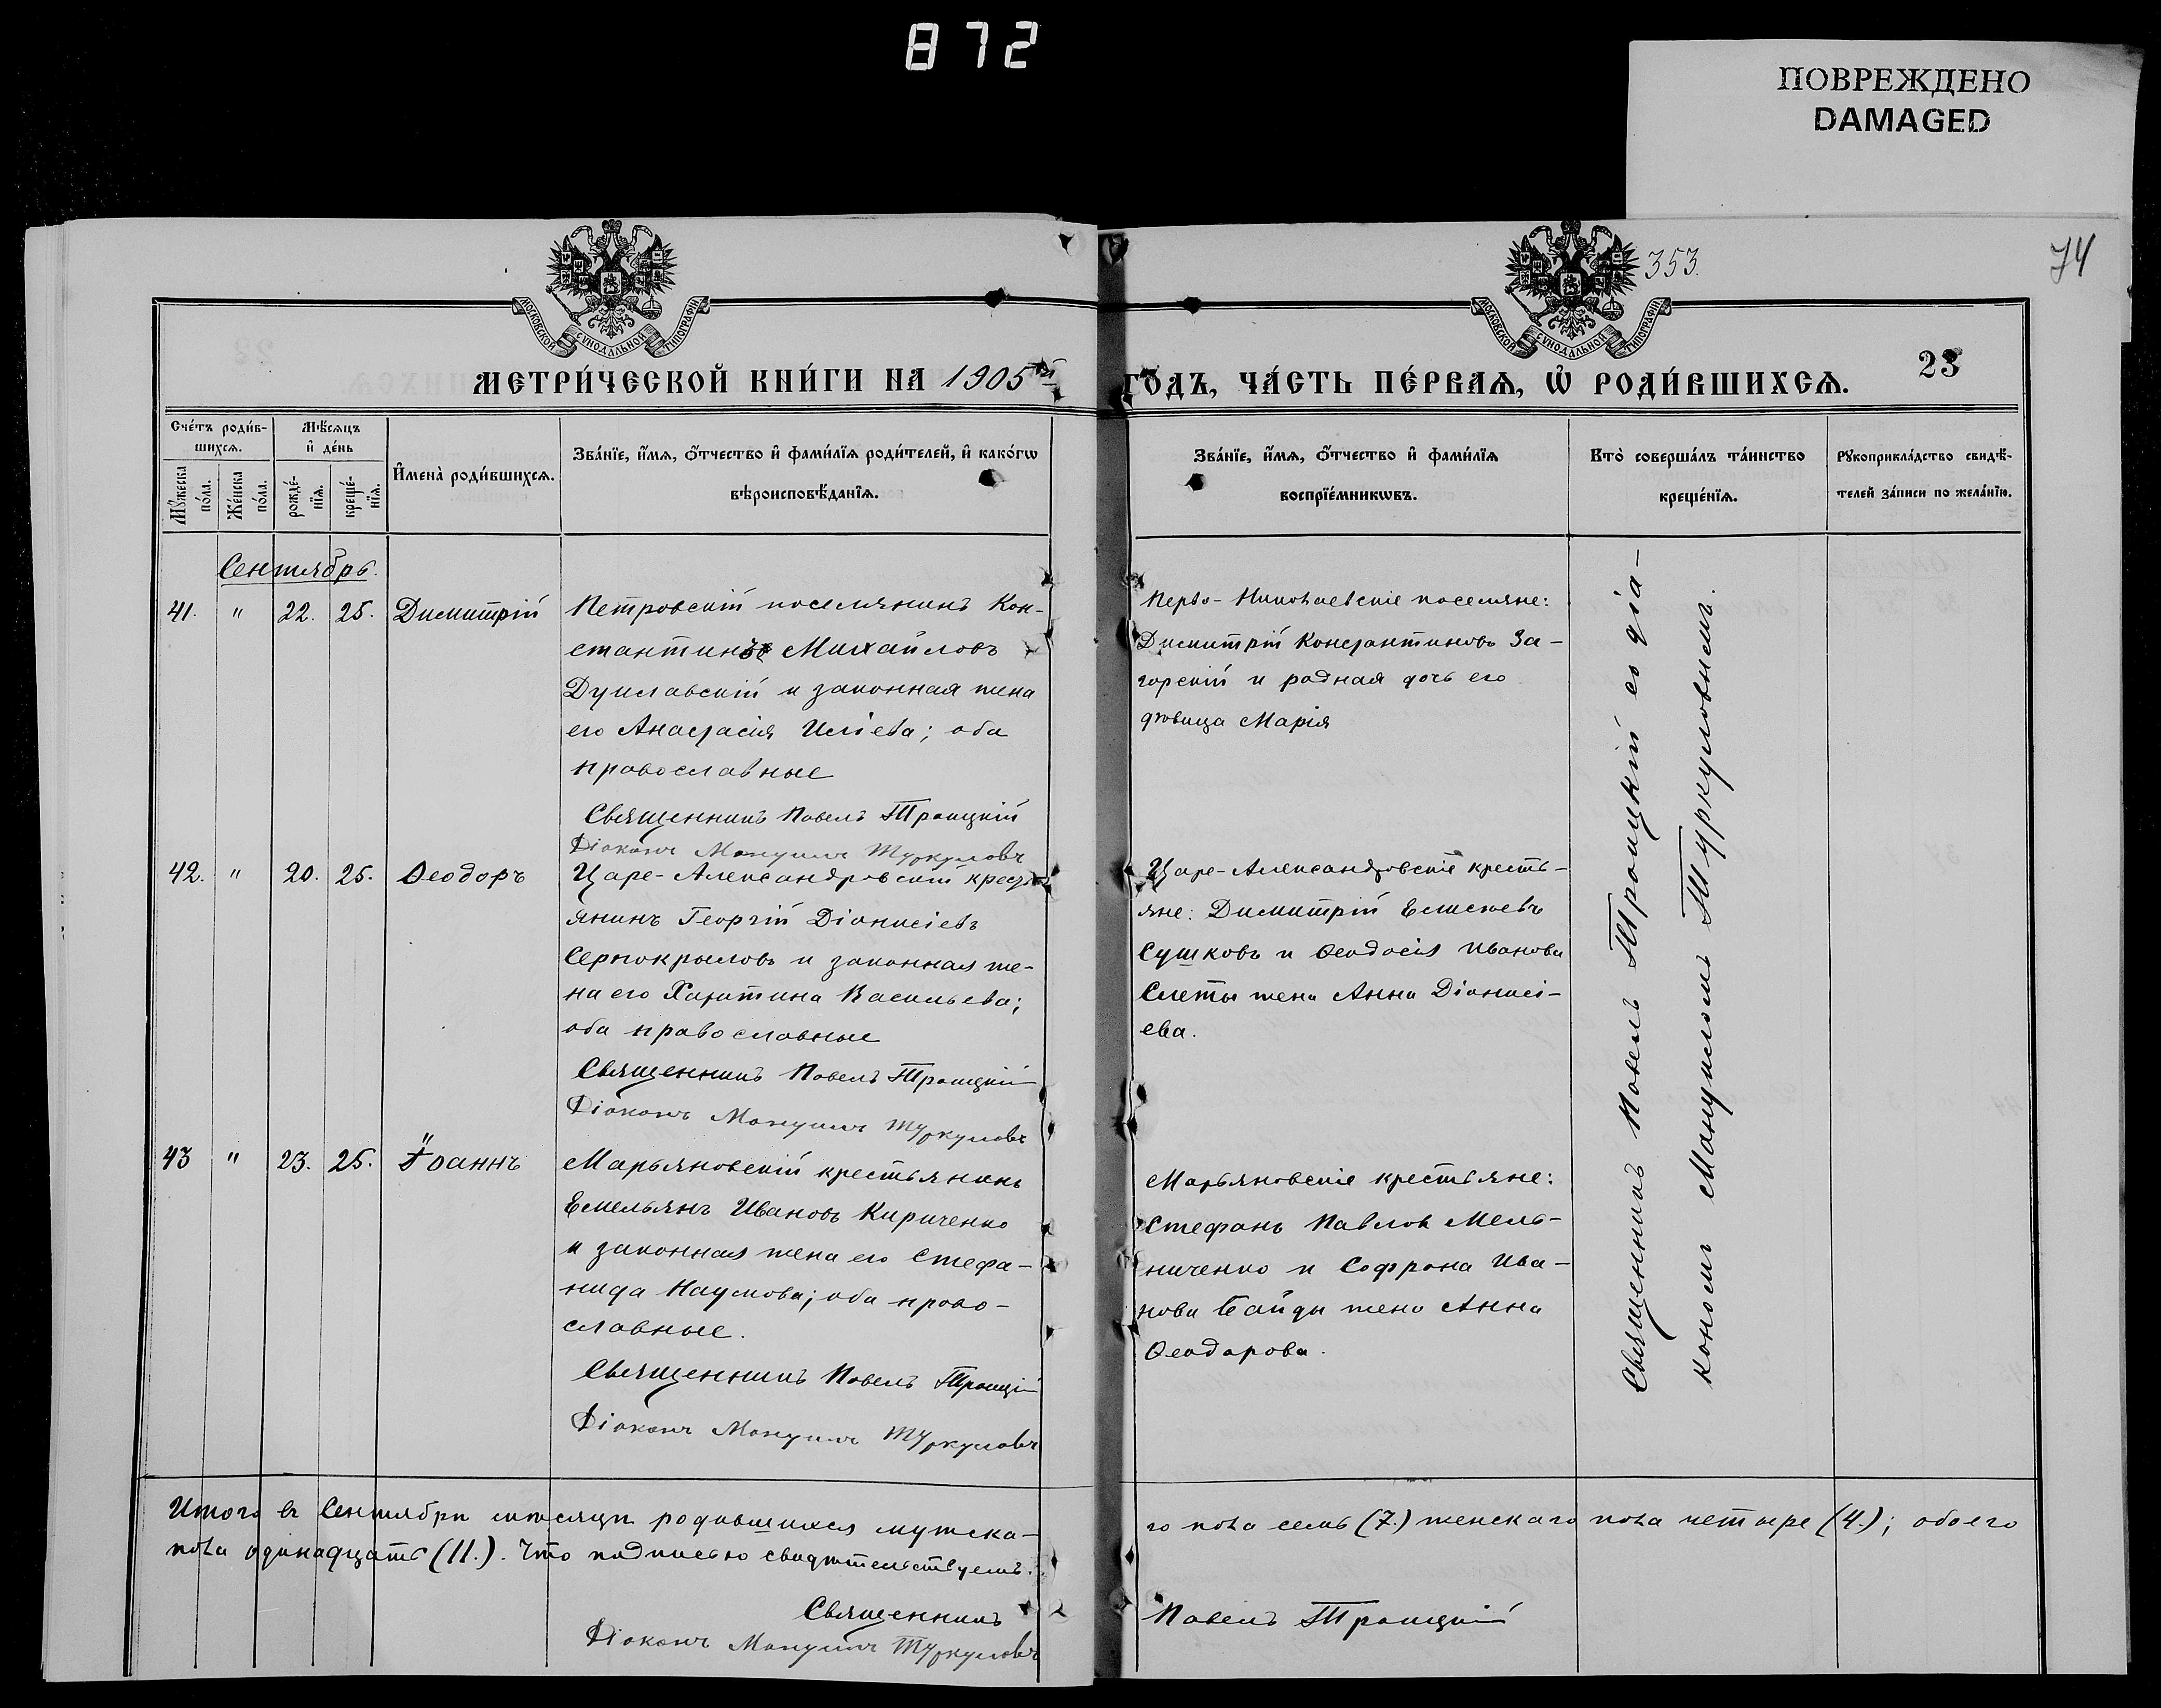 872
ПОВРЕЖДЕНО
DAMAGED
74
353.
23
МОСКОВСКОЙ СѴНОДАЛЬНОЙ ТИПОГРАФІИ
МОСКОВСКОЙ СѴНОДАЛЬНОЙ ТИПОГРАФІИ
МЕТРИ́ЧЕСКОЙ КНИ́ГИ НА 1905ый
ГО́ДЪ, ЧА́СТЬ ПЕ́РВАѦ, Ѡ҆ РОДИ́ВШИХСѦ.
Сче́тъ роди́в-
шихсѧ.
Мѣ́сѧцъ
и҆ де́нь
Мꙋ́жеска
по́ла.
Же́нска
по́ла.
рожде́-
нїѧ.
креще́-
нїѧ.
И҆мена̀ роди́вшихсѧ.
Зва́нїе, и҆́мѧ, ѻ҆́тчество и҆ фами́лїѧ роди́телей, и҆ како́гѡ
вѣроисповѣ́данїѧ.
Зва́нїе, и҆́мѧ, ѻ҆́тчество и҆ фами́лїѧ
воспрїе́мникѡвъ.
Кто̀ соверша́лъ та́инство
креще́нїѧ.
Рꙋкоприкла́дство свидѣ́-
телей за́писи по жела́нїю.
Сентябрь.
41. " 22. 25. Димитрій
Петровскій поселянинъ Кон-
стантинъ Михайловъ
Дуиславскій и законная жена
его Анастасія Иліева; оба
православные
Священникъ Павелъ Троицкій
Діаконъ Мануилъ Туркуловъ
Перво-Николаевскіе поселяне:
Димитрій Константиновъ За-
горскій и родная дочь его
дѣвица Марія
42. " 20. 25. Ѳеодоръ
Царе-Александровскій кресть
янинъ Георгій Діонисіевъ
Сернокрыловъ и законная же-
на его Харитина Васильева;
оба православные
Священникъ Павелъ Троицкій
Діаконъ Мануилъ Туркуловъ
Царе-Александровскіе кресть-
яне: Димитрій
Сушковъ и Ѳеодосія Иванова
жена Анна Діонисі-
ева.
43 " 23. 25. Іоаннъ
Марьяновскій крестьянинъ
Емельянъ Ивановъ Кириченко
и законная жена его Стефа-
нида Наумова; оба право-
славные.
Священникъ Павелъ Троицкій
Діаконъ Мануилъ Туркуловъ
Марьяновскіе крестьяне:
Стефанъ Павловъ Мель-
ниченко и Софрона Ива-
нова Байды жена Анна
Ѳеодорова.
Священникъ Павелъ Троицкій съ діа-
кономъ Мануиломъ Туркуловымъ.
Итого въ Сентябрѣ мѣсяцѣ родившихся мужска-
го пола семь (7.) женскаго пола четыре (4.); обоего
пола одинадцать (11.). Что подписью свидѣтельствуемъ.
Священникъ
Павелъ Троицкій
Діаконъ Мануилъ Туркуловъ